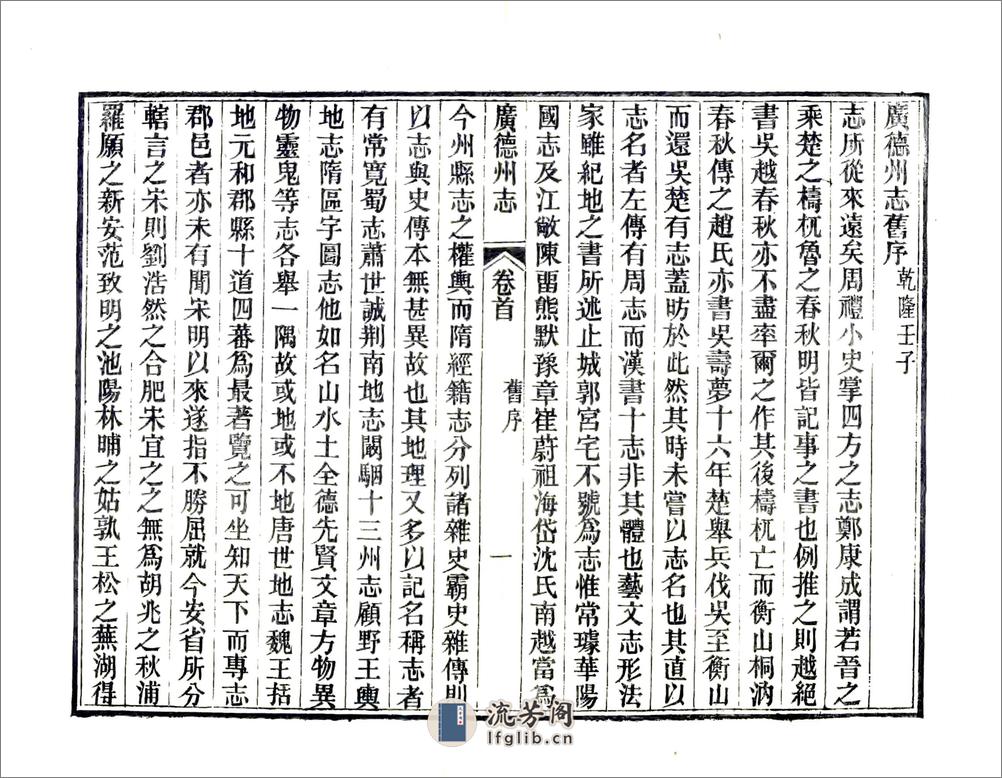 廣德州志舊序乾隆壬子
志所從來遠矣周禮小史掌四方之志鄭康成謂若晉之
乘楚之檮杌魯之春秋明皆記事之書也例推之則越絕
書吳越春秋亦不盡率爾之作其後檮杌亡而衡山桐汭
春秋傳之趙氏亦書吳壽夢十六年楚舉兵伐吳至衡山
而還吳楚有志蓋昉於此然其時未嘗以志名也其直以
志名者左傳有周志而漢書十志非其體也藝文志形法
家雖紀地之書所述止城郭宮宅不號爲志惟常璩華陽
國志及江敞陳畱熊默豫章崔蔚祖海岱沈氏南越當爲
廣德州志 卷首 舊序 一
今州縣志之權輿而隋經籍志分列諸雜史霸史雜傳則
以志與史傳本無甚異故也其地理又多以記名稱志者
有常寬蜀志蕭世誠荆南地志闞駰十三州志顧野王輿
地志隋區宇圖志他如名山水土全德先賢文章方物異
物靈鬼等志各舉一隅故或地或不地唐世地志魏王括
地元和郡縣十道四蕃爲最著覽之可坐知天下而專志
郡邑者亦未有聞宋明以來遂指不勝屈就今安省所分
轄言之宋則劉浩然之合肥宋宜之之無爲胡兆之秋浦
羅願之新安范致明之池陽林㽦之姑孰王松之蕪湖得
流芳阁
lfglib.cn